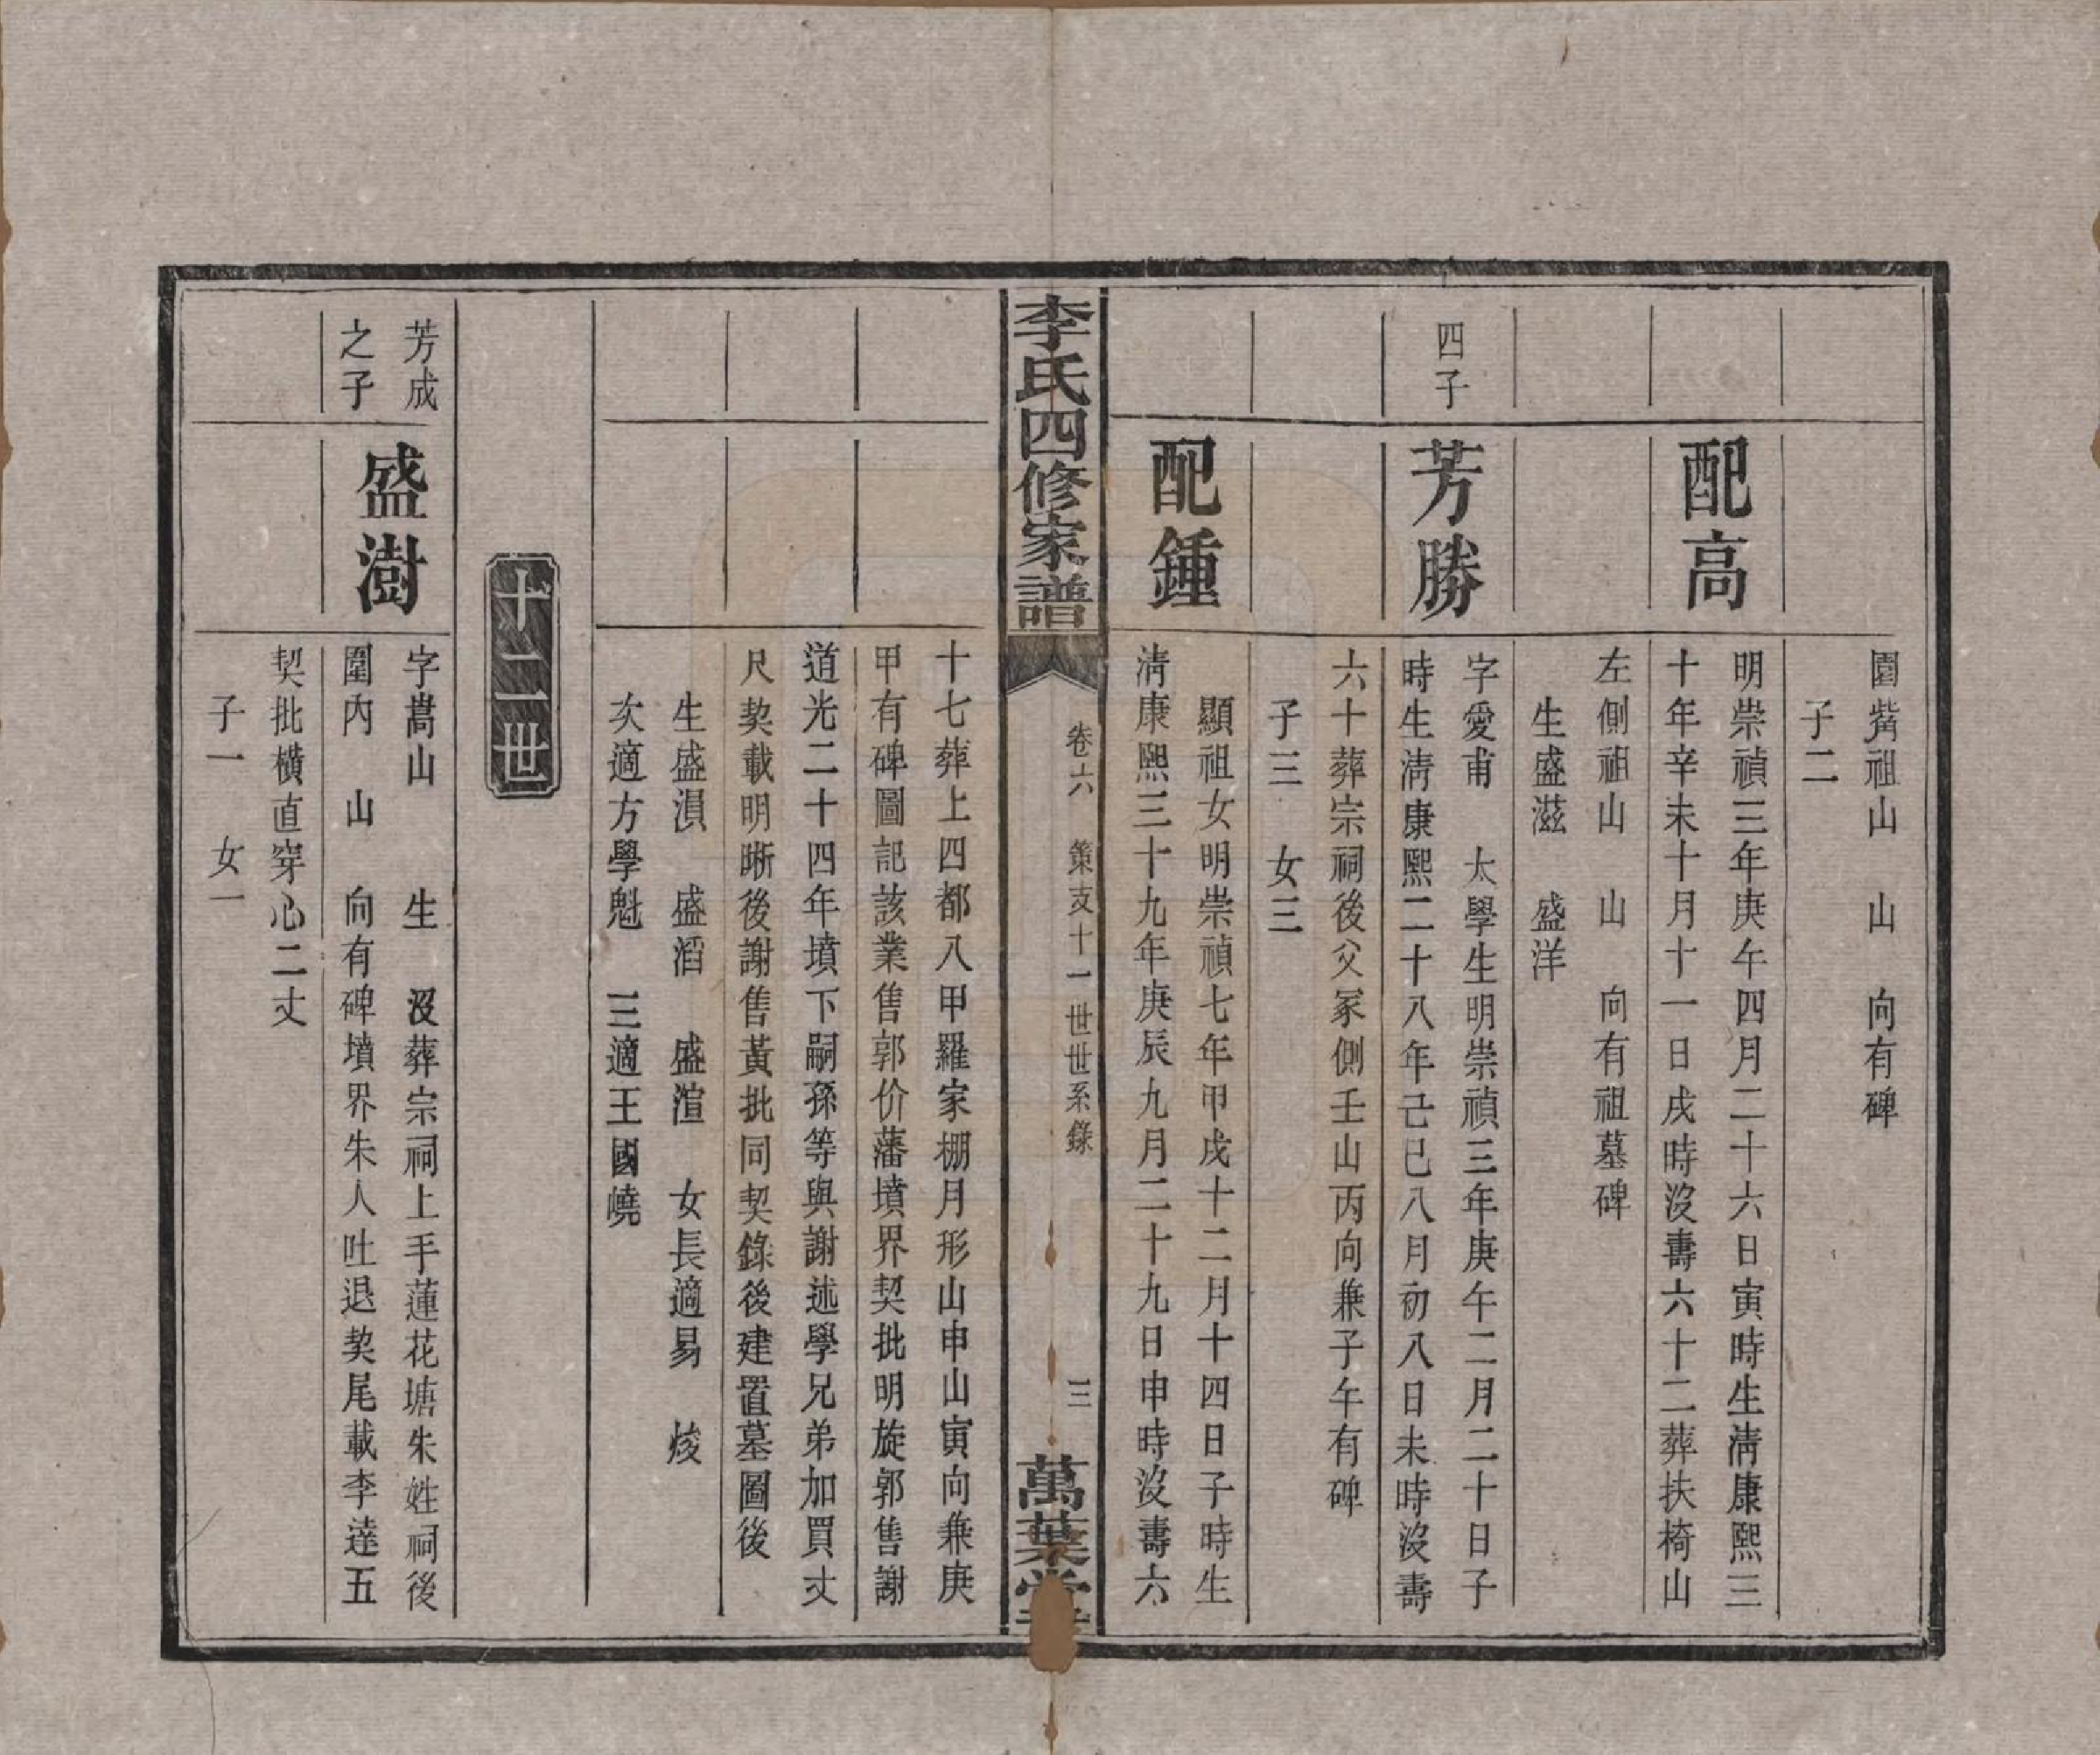 園觜祖山　山　向有碑
子二
配高
明崇禎三年庚午四月二十六日寅時生淸康熙三
十年辛未十月十一日戌時沒壽六十二葬扶椅山
左側祖山　山　向有祖墓碑
生盛滋　盛洋
四子
芳勝
字愛甫　太學生明崇禎三年庚午二月二十日子
時生淸康熙二十八年己巳八月初八日未時沒壽
六十葬宗祠後父冢側壬山丙向兼子午有碑
子三　女三
配鍾
顯祖女明崇禎七年甲戌十二月十四日子時生
淸康熙三十九年庚辰九月二十九日申時沒壽六
李氏四修家譜
卷六　策支十一世世系錄
三
萬葉堂
十七葬上四都八甲羅家棚月形山申山寅向兼庚
甲有碑圖記該業售郭价藩墳界契批明旋郭售謝
道光二十四年墳下嗣孫等與謝述學兄弟加買丈
尺契載明晰後謝售黃批同契錄後建置墓圖後
生盛溳　盛滔　盛渲　女長適易　焌
次適方學魁　三適王國嶢
十二世
芳成
之子
盛澍
字嵩山　生　沒葬宗祠上手蓮花塘朱姓祠後
圍內　山　向有碑墳界朱人吐退契尾載李達五
契批橫直穿心二丈
子一　女一